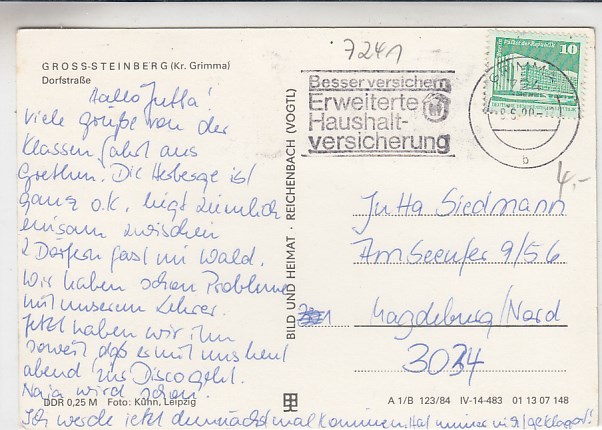 7241
GROSS-STEINBERG (Kr. Grimma)
Dorfstraße
Hallo Jutta!
Viele grüße von der
Klassenfahrt aus
Grethen. Die Herberge ist
ganz o.k. liegt ziemlich
einsam zwischen
2 Dörfern fast im Wald.
Wir haben schon Probleme
mit unserem Lehrer.
Jetzt haben wir ihn
soweit das er mit uns heut
abend zur Disco geht.
Naja wird schon.
Ich werde jetzt demnächst mal kommen. Hat immer
DDR 0,25 M Foto: Kühn, Leipzig
BILD UND HEIMAT · REICHENBACH (VOGTL)
Besser versichern
Erweiterte
Haushalt-
versicherung
GRIMMA
b
Palast der Republik
10
4,-
Jutta Siedmann
Am Seeufer 9/56
Magdeburg/Nord
3034
A 1/B 123/84 IV-14-483 01 13 07 148